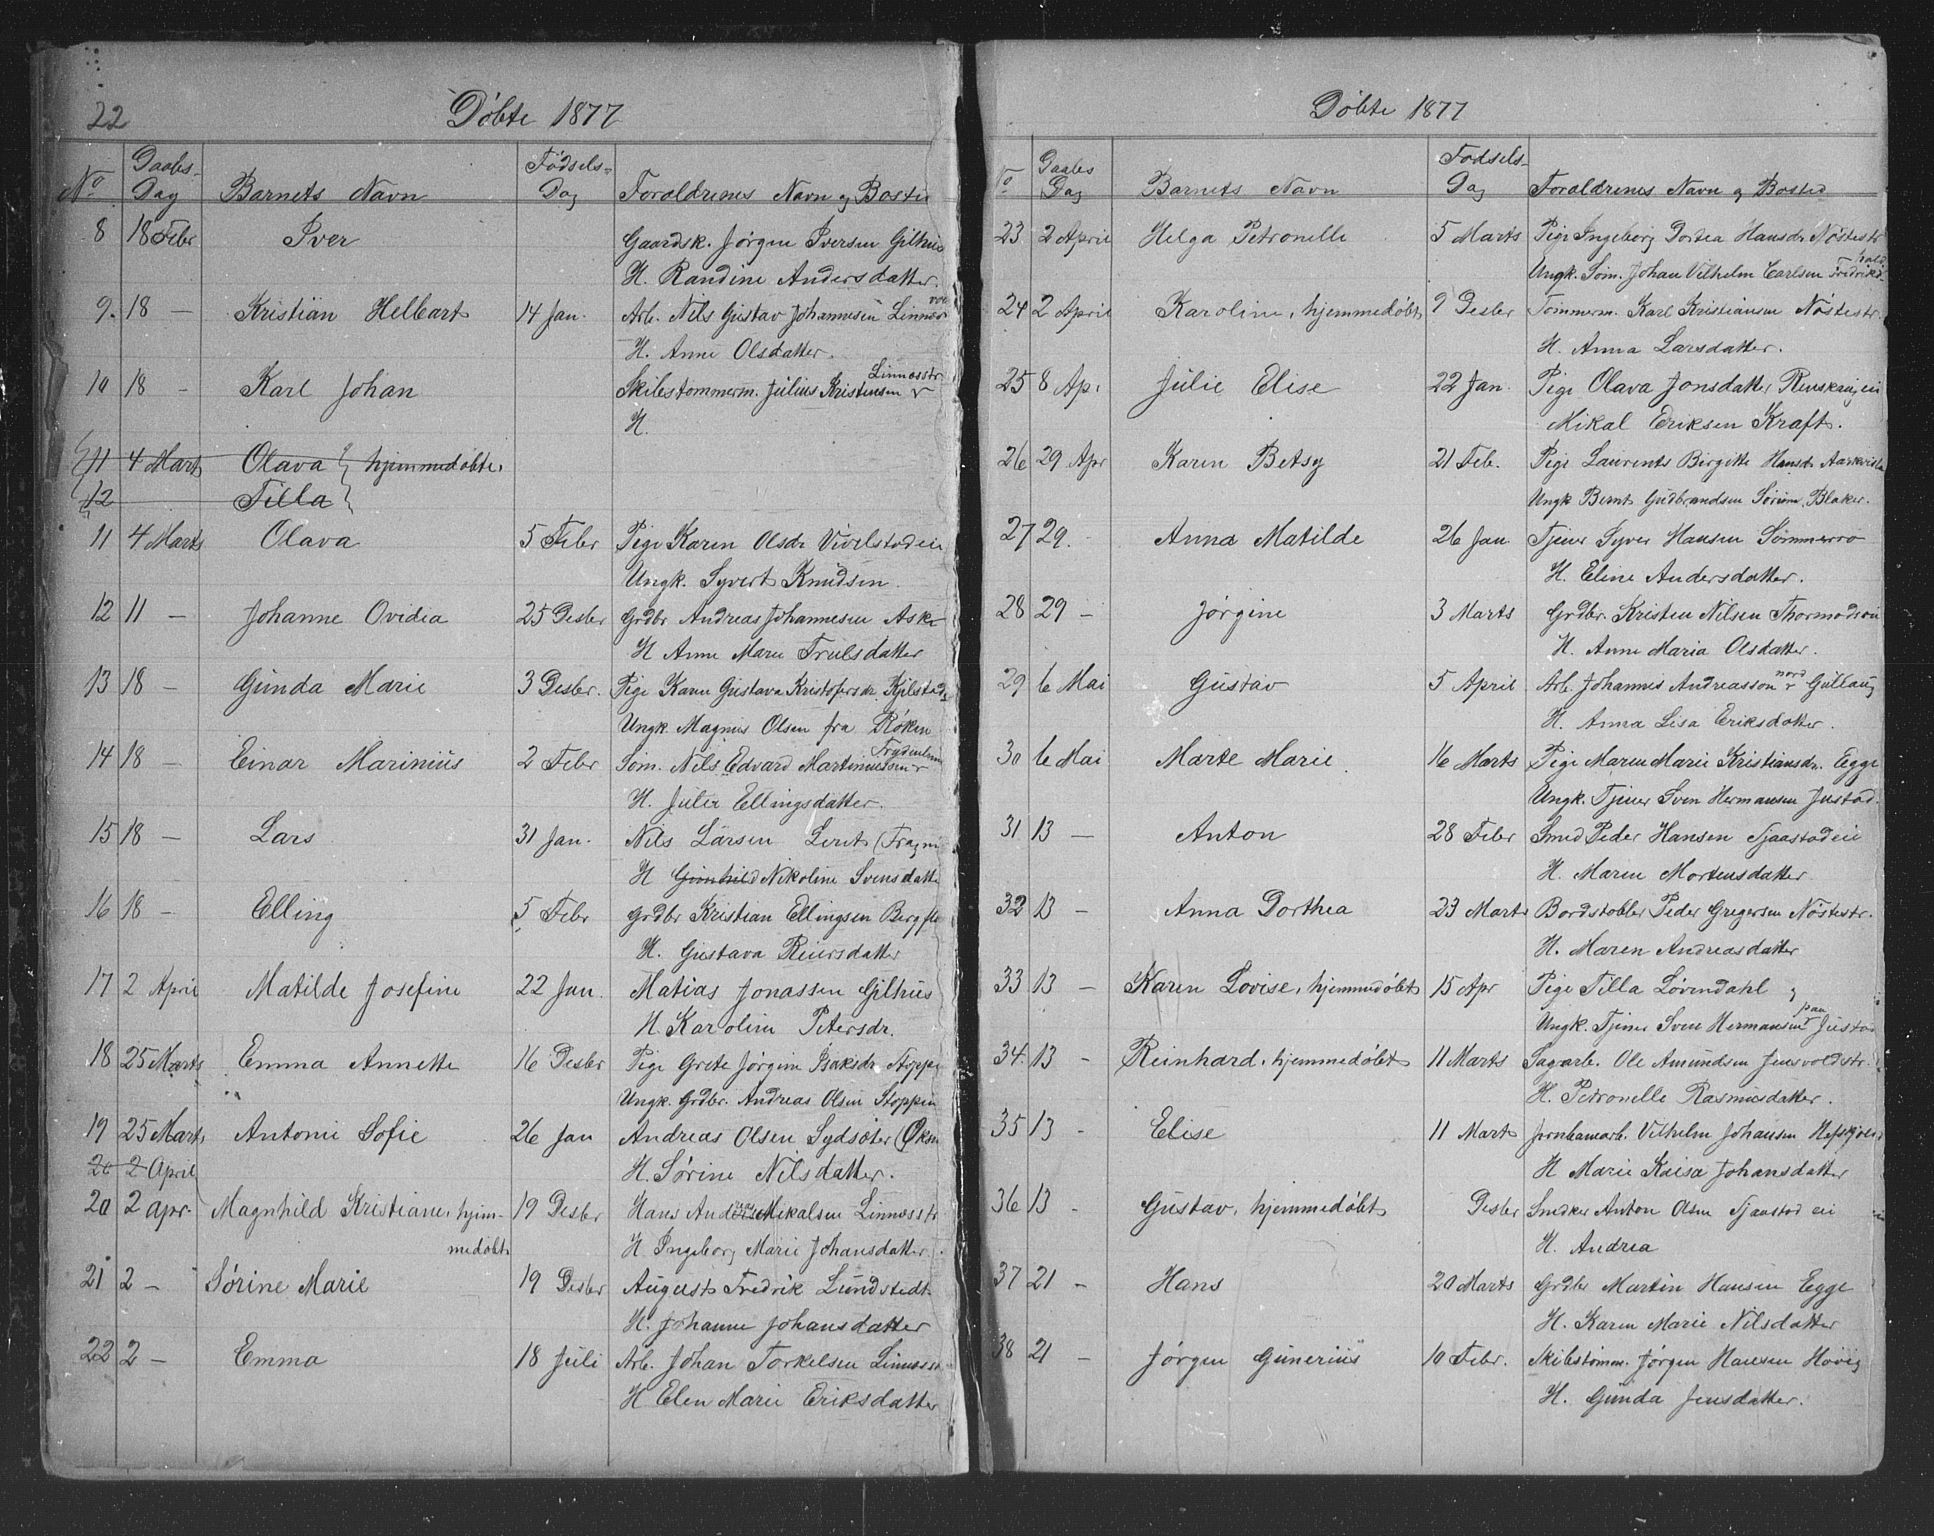 22
Döbte 1877
No Daabs-Dag Barnets Navn Födsels-Dag Foraldrenes Navn og Bosted
8 18 Febr Iver Gaardsk. Jörgen Iversen Gilhus
H. Randine Andersdatter.
9. 18 — Kristian Helbart 14 Jan. Arb. Nils Gustav Johannesen
H. Anne Olsdatter.
10 18 - Karl Johan Skibstommerm. Julius Kristensen Linnesstr
H.
11 4 Marts Olava hjemmedöbte.
12 Tilla
11 4 Marts Olava 5 Febr Pige Karen Olsdr Vivelstadeie
Ungk. Syvert Knudsen.
12 11 — Johanne Ovidia 25 Desbr Grdbr Andreas Johannesen Aske
H Anne Marie Trulsdatter
13 18 — Gunda Marie 3 Desbr. Pige Karen Gustava Kristofersdr. Kjelstad
Ungk. Magnus Olsen fra Röken
14 18 — Einar Marinius 2 Febr Som. Nils Edvard Martiniussen
H. Julie Ellingsdatter.
15 18 — Lars 31 Jan. Nils Larsen
H Gunhild Nikoline Svensdatter
16 18 - Elling 5 Febr Grdbr Kristian Ellingsen
H. Gustava Reiersdatter
17 2 April Matilde Josefine 22 Jan. Matias Jonassen Gilhus
H. Karoline Petersdr.
18 25 Marts Emma Annette 16 Desbr Pige Grete Jörgine Isaksdr Stoppen
Ungk. Grdbr. Andreas Olsen Stoppen
19 25 Marts Antonie Sofie 26 Jan Andreas Olsen
20 2 April H. Sörine Nilsdatter.
20 2 Apr. Magnhild Kristiane, hjem- 19 Desbr Hans Andreas Mikalsen Linnesstr
medöbt H. Ingeborg Marie Johansdatter.
21 2 — Sörine Marie 19 Desbr August Fredrik Lundstedt
H. Johanne Johansdatter
22 2 — Emma 18 Juli Arb. Johan Torkelsen Linnesstr
H Elen Marie Eriksdatter
Döbte 1877
No Daabs Dag Barnets Navn Födsels-Dag Foraldrenes Navn og Bosted
23 2 April Helga Petronelle 5 Marts Pige Ingeborg Dortea Hansdr Nöstestr
Ungk. Som. Johan Vilhelm Carlsen Fredrikshald
24 2 April Karoline, hjemmedöbt 9 Desbr Tommerm. Karl Kristiansen Nöstestr.
H. Anna Larsdatter.
25 8 Apr Julie Elise 22 Jan. Pige Olava Jonsdatter
Mikal Eriksen Kraft.
26 29 Apr Karen Betsy 21 Feb. Pige Laurents Birgitte Hansdr
Ungk Bernt Gudbrandsen Sörum, Blaker.
27 29. Anna Matilde 26 Jan. Tjener Syver Hansen Sömmerro
H. Eline Andersdatter.
28 29 — Jörgine 3 Marts Grdbr Kristen Nilsen Thormodseie
H. Anne Maria Olsdatter.
29 6 Mai Gustav 5 April Arb. Johannes Andreasson nord Gullaug
H. Anna Lisa Eriksdatter.
30 6 Mai Marte Marie 16 Marts Pige Maren Marie Kristiansdr. Egge
Ungk. Tjener Sven Hermansen Justad.
31 13 — Anton 28 Febr Smed Peder Hansen Sjaastadeie
H. Maren Mortensdatter
32 13 — Anna Dorthea 23 Marts Bordstabler Peder Gregersen Nöstestr.
H. Maren Andreasdatter
33 13 — Karen Lovise, hjemmedöbt 15 Apr Pige Tilla Lövendahl
Ungk. Tjener Sven Hermansen paa Justad
34 13 - Reinhard, hjemmedöbt 11 Marts Sagarb. Ole Amundsen Jensvoldstr.
H. Petronelle Rasmusdatter.
35 13 - Elise 11 Marts Jernbanearb. Vilhelm Johansen
H Marie Kaisa Johansdatter
36 13 - Gustav, hjemmedöbt Desbr Snedker Anton Olsen Sjaastad eie
H. Andrea
37 21 — Hans 20 Marts Grdbr Martin Hansen Egge
H. Karen Marie Nilsdatter
38 21 — Jörgen Gunerius 10 Febr. Skibstömm. Jörgen Hansen Hovig
H. Gunda Jensdatter.